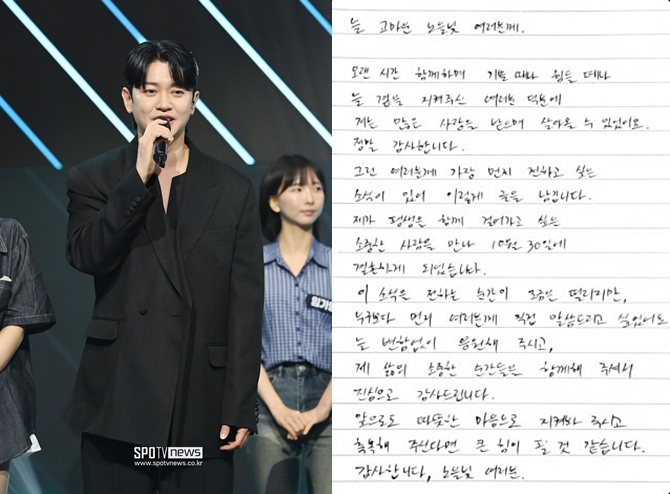 SPOTV news
www.spotvnews.co.kr
늘 고마운 노을빛 여러분께.
오랜 시간 함께하며 기쁠 때나 힘들 때나
늘 곁을 지켜주신 여러분 덕분에
저는 많은 사랑을 받으며 살아올 수 있었어요.
정말 감사합니다.
그런 여러분께 가장 먼저 전하고 싶은
소식이 있어 이렇게 글을 남깁니다.
제가 평생을 함께 걸어가고 싶은
소중한 사람을 만나 10월 30일에
결혼하게 되었습니다.
이 소식을 전하는 순간이 조금은 떨리지만,
누구보다 먼저 여러분께 직접 말씀드리고 싶었어요
늘 변함없이 응원해 주시고,
제 삶의 소중한 순간들을 함께해 주셔서
진심으로 감사드립니다.
앞으로도 따뜻한 마음으로 지켜봐 주시고
축복해 주신다면 큰 힘이 될 것 같습니다.
감사합니다, 노을빛 여러분.